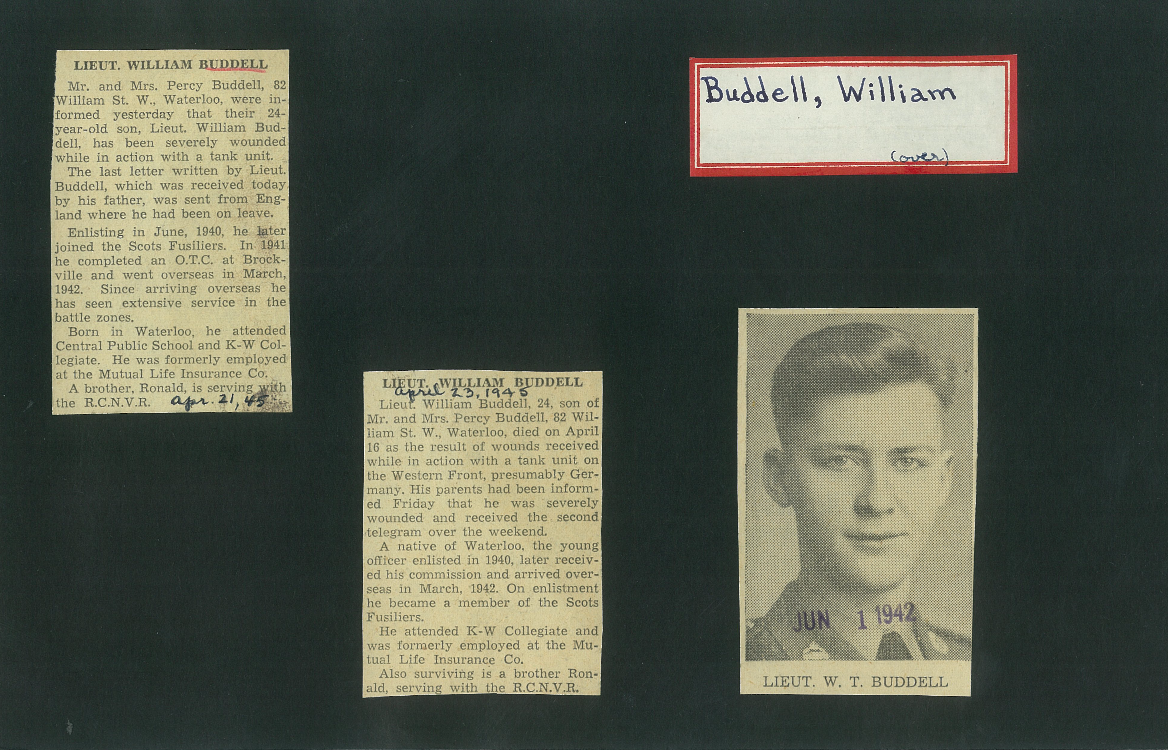 LIEUT. WILLIAM BUDDELL
Mr. and Mrs. Percy Buddell, 82
William St. W., Waterloo, were in-
formed yesterday that their 24-
year-old son, Lieut. William Bud-
dell, has been severely wounded
while in action with a tank unit.
The last letter written by Lieut.
Buddell, which was received today
by his father, was sent from Eng-
land where he had been on leave.
Enlisting in June, 1940, he later
joined the Scots Fusiliers. In 1941
he completed an O.T.C. at Brock-
ville and went overseas in March,
1942. Since arriving overseas he
has seen extensive service in the
battle zones.
Born in Waterloo, he attended
Central Public School and K-W Col-
legiate. He was formerly employed
at the Mutual Life Insurance Co.
A brother, Ronald, is serving with
the R.C.N.V.R. Apr. 21, 45
LIEUT. WILLIAM BUDDELL
April 23, 1945
Lieut. William Buddell, 24, son of
Mr. and Mrs. Percy Buddell, 82 Wil-
liam St. W., Waterloo, died on April
16 as the result of wounds received
while in action with a tank unit on
the Western Front, presumably Ger-
many. His parents had been inform-
ed Friday that he was severely
wounded and received the second
telegram over the weekend.
A native of Waterloo, the young
officer enlisted in 1940, later receiv-
ed his commission and arrived over-
seas in March, 1942. On enlistment
he became a member of the Scots
Fusiliers.
He attended K-W Collegiate and
was formerly employed at the Mu-
tual Life Insurance Co.
Also surviving is a brother Ron-
ald, serving with the R.C.N.V.R.
Buddell, William
(over)
JUN 1 1942
LIEUT. W. T. BUDDELL